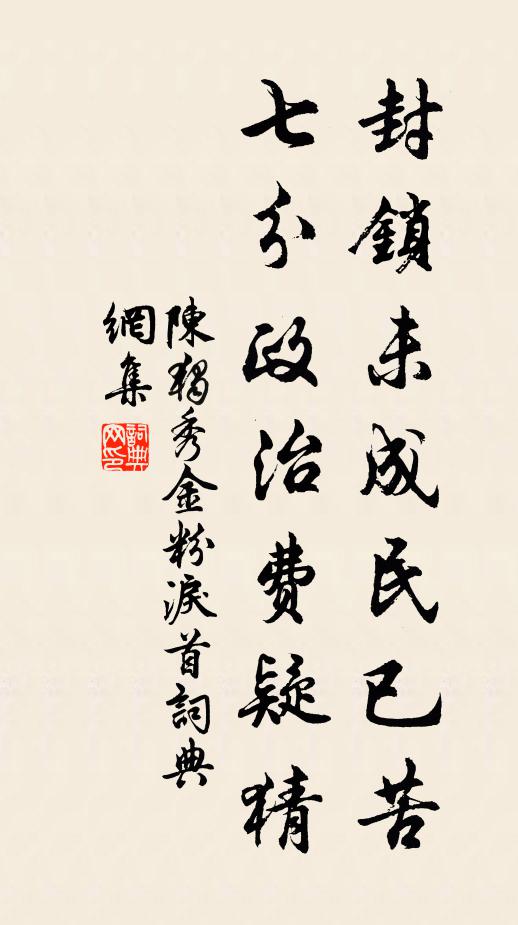 封鎖未成民已苦
七分政治費疑猜
陳獨秀金粉淚首詞典
網集
詞典
网印